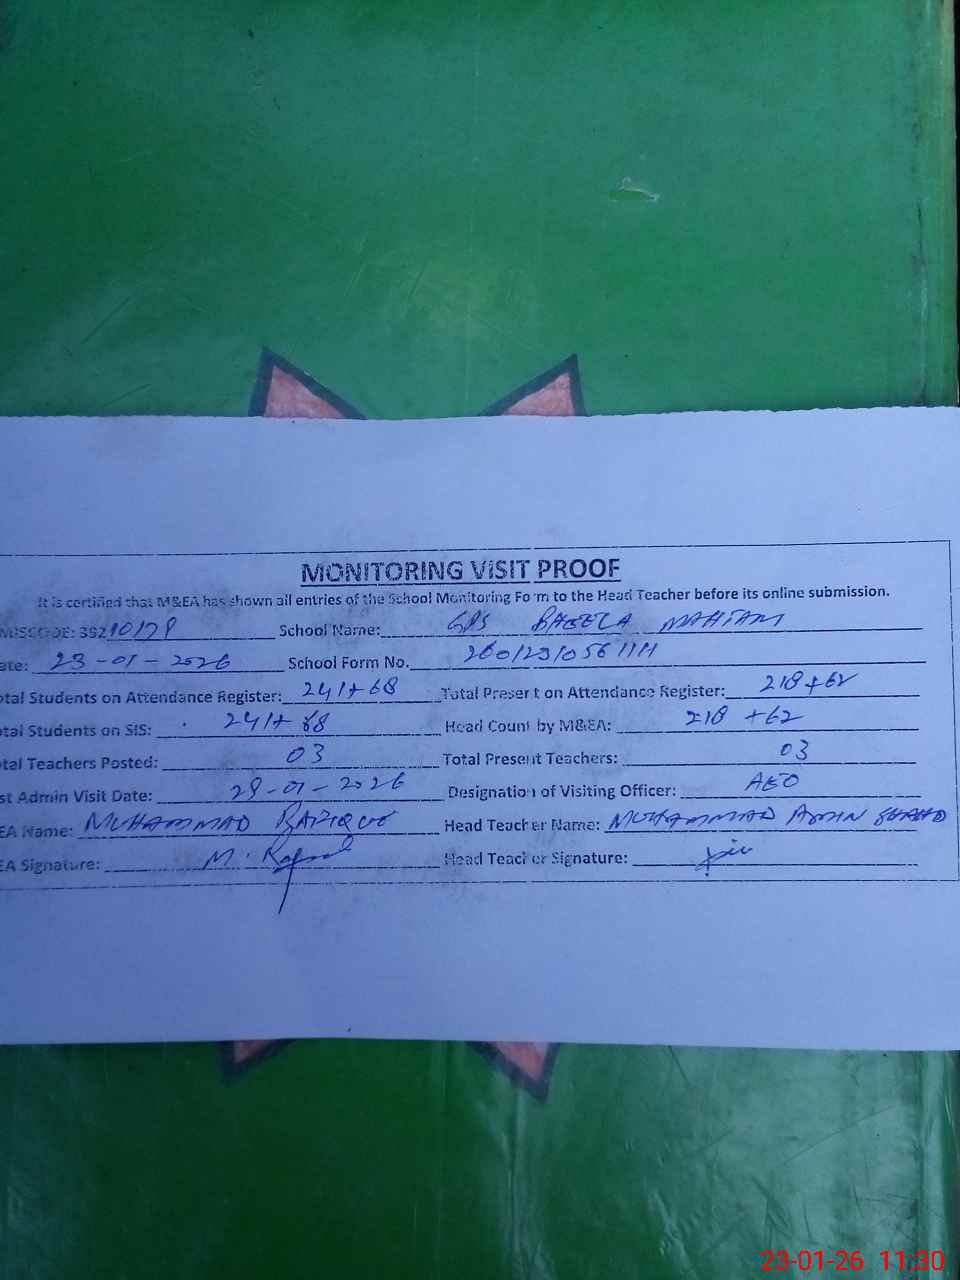 MONITORING VISIT PROOF
It is certified that M&EA has shown all entries of the School Monitoring Form to the Head Teacher before its online submission.
School Name: GPS MAHTAM
ate: 23-01-2026 School Form No.
otal Students on Attendance Register: 241+68 Total Present on Attendance Register: 218+62
otal Students on SIS: 241+68 Head Count by M&EA: 218 +62
otal Teachers Posted: 03 Total Present Teachers: 03
st Admin Visit Date: -01-2026 Designation of Visiting Officer: AEO
EA Name: MUHAMMAD RAFIQUE Head Teacher Name: MUHAMMAD AMIN
EA Signature: M. Head Teacher Signature:
23-01-26 11:30